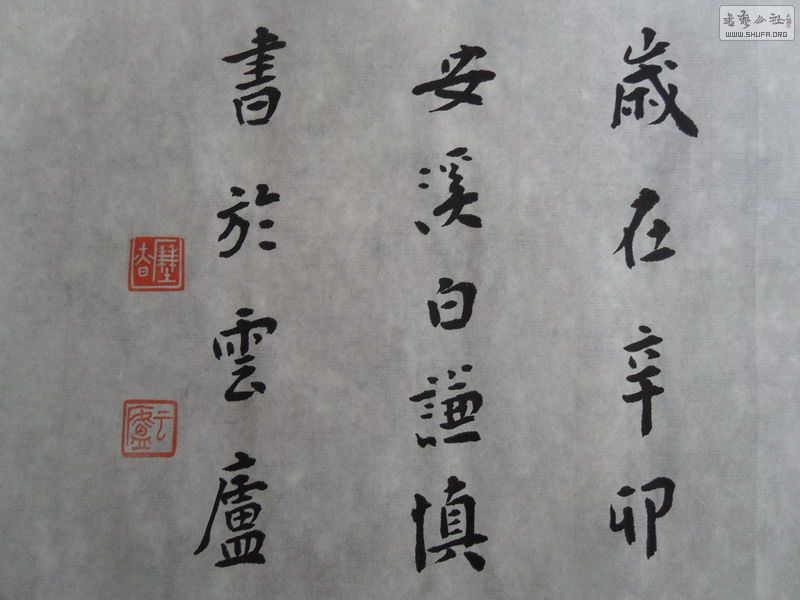 歲在辛卯
安溪白謙慎
書於雲廬
云廬
WWW.SHUFA.ORG